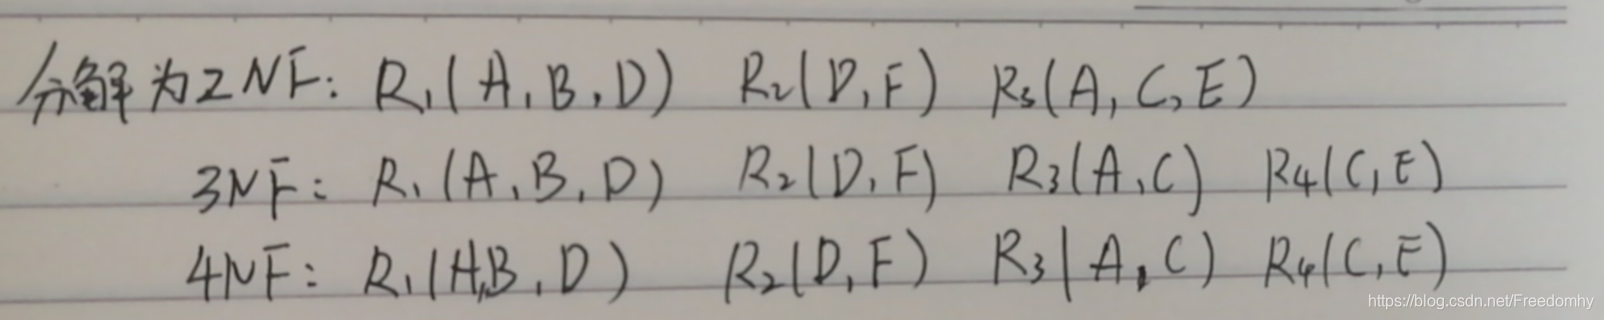 分解为2NF: R₁(A,B,D) R₂(D,F) R₃(A,C,E)
3NF: R₁(A,B,D) R₂(D,F) R₃(A,C) R₄(C,E)
4NF: R₁(A,B,D) R₂(D,F) R₃(A,C) R₄(C,E)
https://blog.csdn.net/Freedomhy